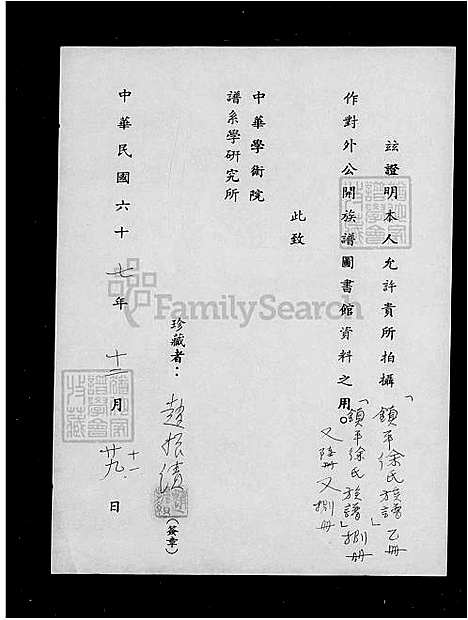 茲證明本人允許貴所拍攝「鎮平徐氏族譜」乙冊
「鎮平徐氏族譜」捌冊
又陸冊又捌冊
作對外公開族譜圖書館資料之用。
此致
中華學術院
譜系學研究所
珍藏者：趙振績（簽章）
中華民國六十七年十二月廿九日
FamilySearch